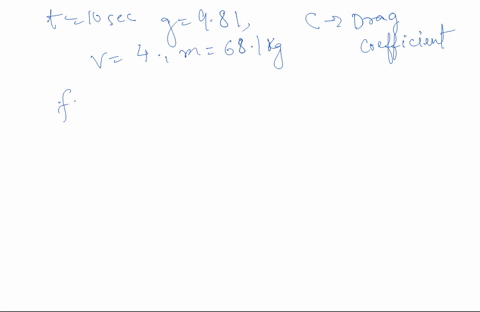 t=10sec g=9.81, C→Drag
coefficient
v= 4., m=68.1kg
f.